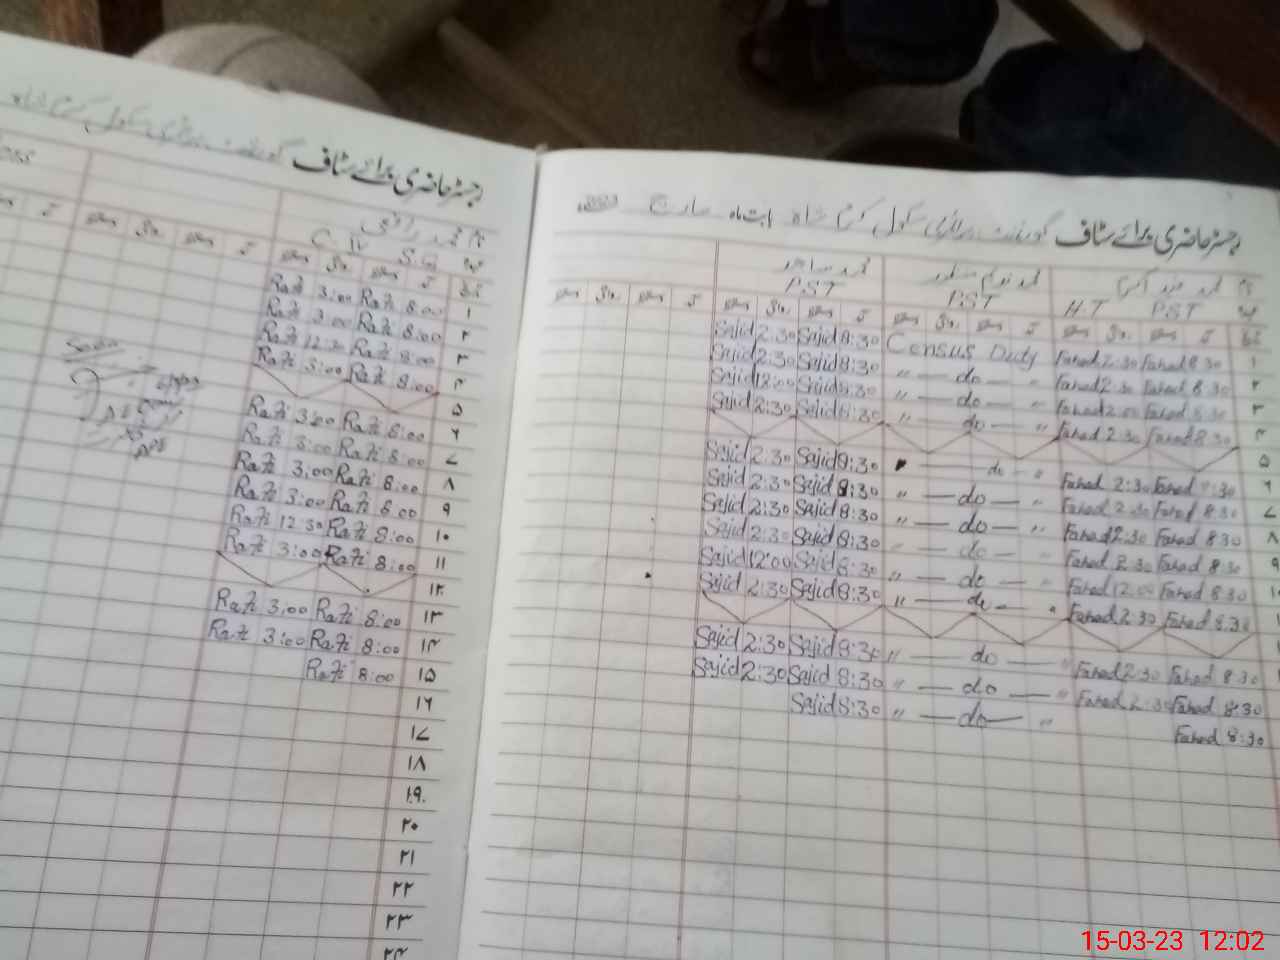 رجسٹر حاضری برائے سٹاف گورنمنٹ پرائمری سکول کرم شاہ بابت ماہ مارچ
نام محمد فہد
H.T PST
PST
محمد ساجد
PST
Sajid 2:30 Sajid 8:30 Census Duty Fahad 2:30 Fahad 8:30 ۱
Sajid 2:30 Sajid 8:30 " — do — " Fahad 2:30 Fahad 8:30 ۲
Sajid 12:00 Sajid 8:30 " — do — " Fahad 12:00 Fahad 8:30 ۳
Sajid 2:30 Sajid 8:30 " — do — " Fahad 2:30 Fahad 8:30 ۴
۵
Sajid 2:30 Sajid 8:30 " — do — " Fahad 2:30 Fahad 8:30 ۶
Sajid 2:30 Sajid 8:30 " — do — " Fahad 2:30 Fahad 8:30 ۷
Sajid 2:30 Sajid 8:30 " — do — " Fahad 2:30 Fahad 8:30 ۸
Sajid 2:30 Sajid 8:30 " — do — Fahad 2:30 Fahad 8:30 ۹
Sajid 12:00 Sajid 8:30 " — do — " Fahad 12:00 Fahad 8:30
Sajid 2:30 Sajid 8:30 " — do — " Fahad 2:30 Fahad 8:30
Sajid 2:30 Sajid 8:30 " — do — " Fahad 2:30 Fahad 8:30
Sajid 2:30 Sajid 8:30 " — do — " Fahad 2:30 Fahad 8:30
Sajid 8:30 " — do — " Fahad 8:30
رجسٹر حاضری برائے سٹاف گورنمنٹ پرائمری سکول کرم شاہ
نام محمد رافع
Rafi 3:00 Rafi 8:00 ۱
Rafi 3:00 Rafi 8:00 ۲
Rafi 12:30 Rafi 8:00 ۳
Rafi 3:00 Rafi 8:00 ۴
۵
Rafi 3:00 Rafi 8:00 ۶
Rafi 3:00 Rafi 8:00 ۷
Rafi 3:00 Rafi 8:00 ۸
Rafi 3:00 Rafi 8:00 ۹
Rafi 12:30 Rafi 8:00 ۱۰
Rafi 3:00 Rafi 8:00 ۱۱
۱۲
Rafi 3:00 Rafi 8:00 ۱۳
Rafi 3:00 Rafi 8:00 ۱۴
Rafi 8:00 ۱۵
۱۶
۱۷
۱۸
۱۹
۲۰
۲۱
۲۲
۲۳
۲۴
15-03-23 12:02